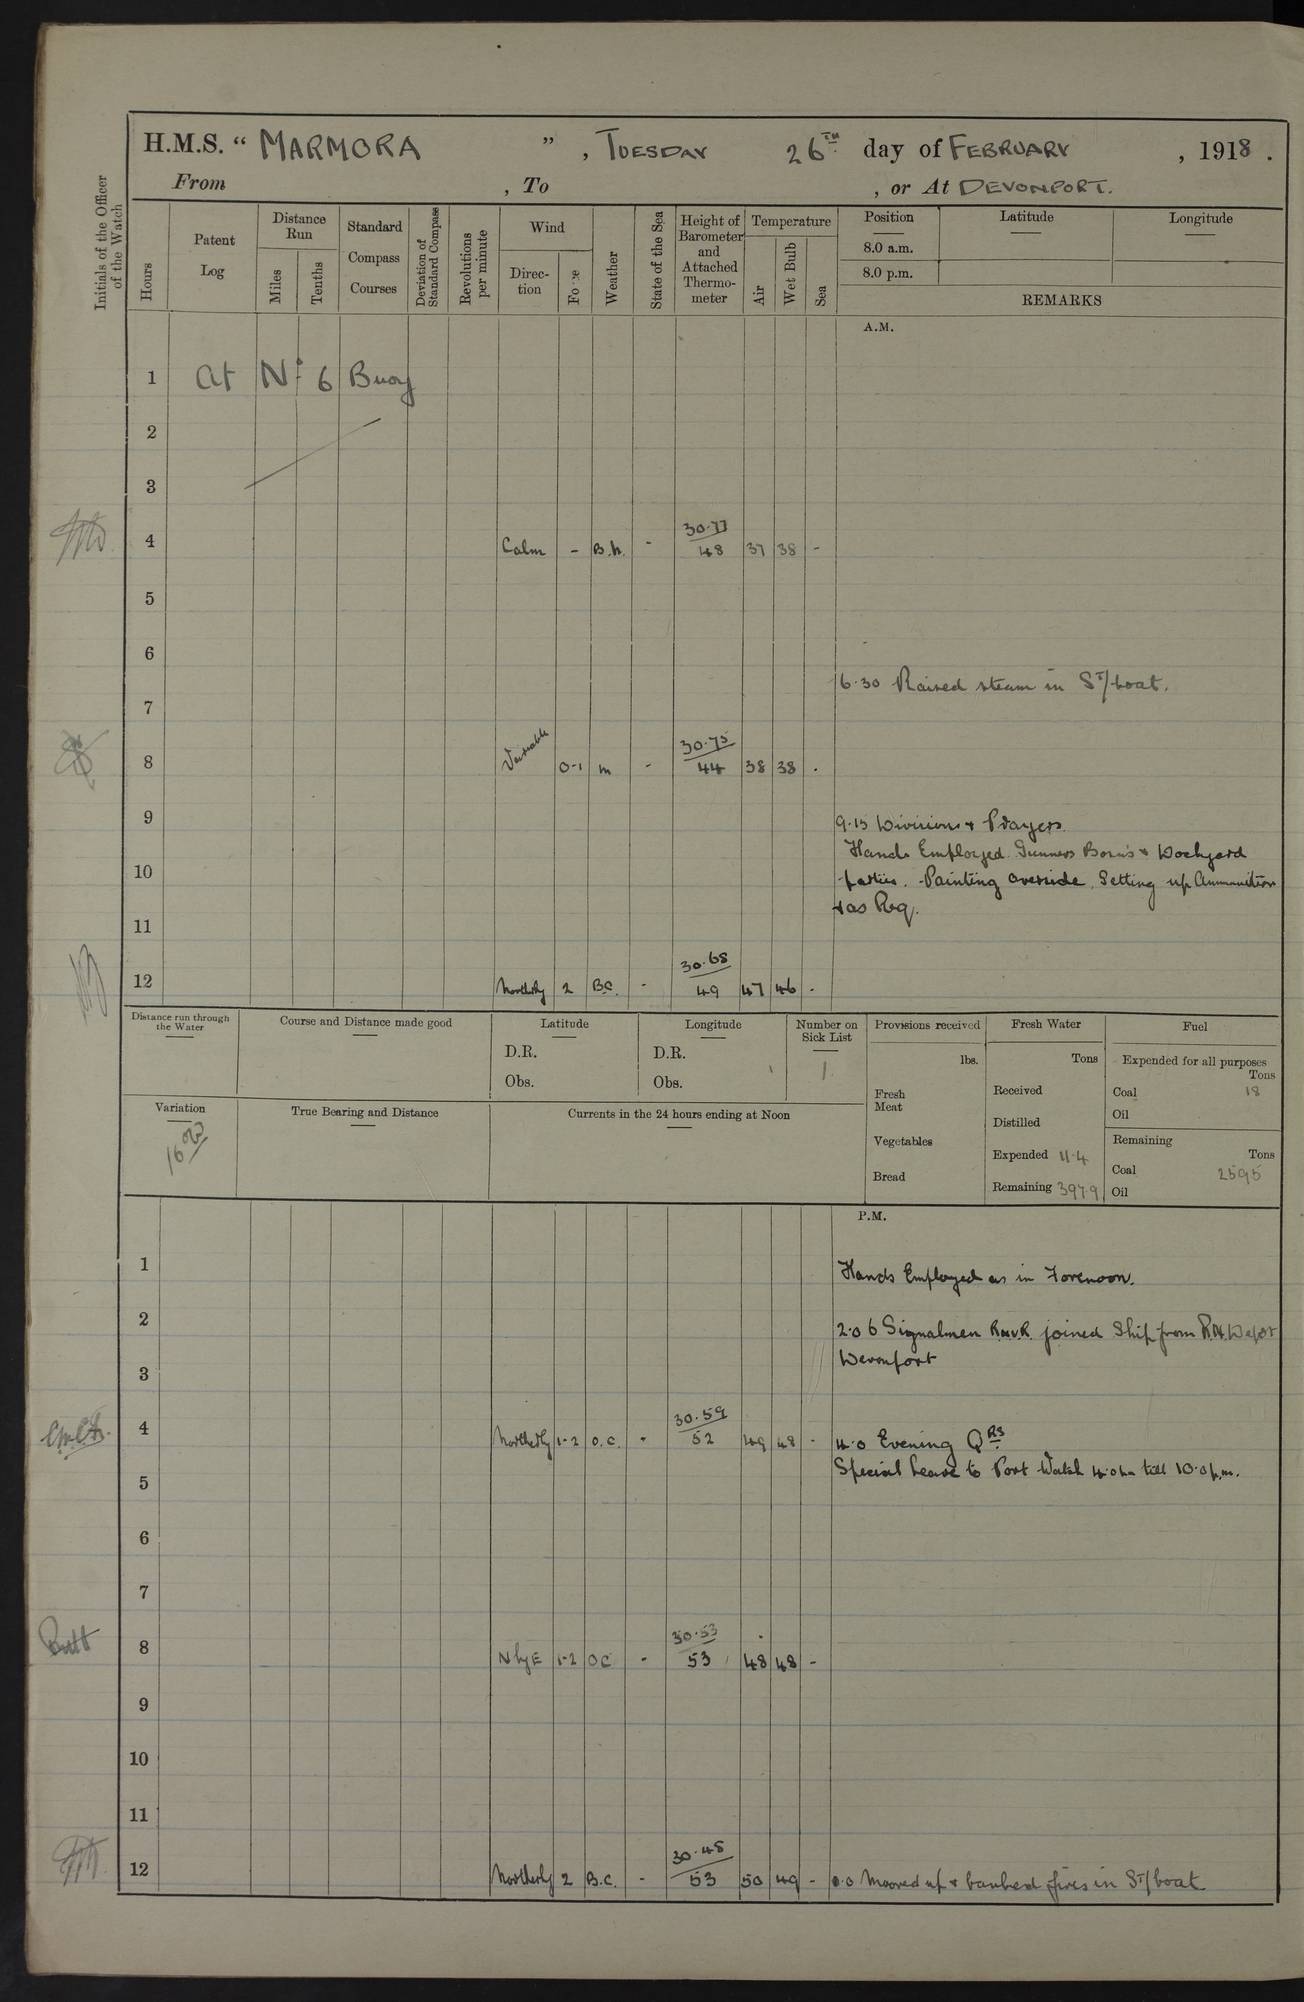 H.M.S. “ MARMORA ” , TUESDAY 26TH day of FEBRUARY , 1918 .
From , To , or At DEVONPORT.
Initials of the Officer of the Watch
Hours
Patent Log
Distance Run
Miles
Tenths
Standard Compass Courses
Deviation of Standard Compass
Revolutions per minute
Wind
Direc-tion
Force
Weather
State of the Sea
Height of Barometer and Attached Thermo-meter
Temperature
Air
Wet Bulb
Sea
Position
Latitude
Longitude
8.0 a.m.
8.0 p.m.
REMARKS
A.M.
1 At No 6 Buoy
2
3
4 Calm - B.M. - 30.77 48 37 38 -
5
6
6.30 Raised steam in ST/boat.
7
8 Variable 0-1 m - 30.75 44 38 38 .
9
9.15 Divisions & Prayers.
Hands Employed. Gunners Bosn's & Dockyard
10
parties. Painting overside. Setting up Ammunition
& as Req.
11
12 Northerly 2 B.C. - 30.68 49 47 46 -
Distance run through the Water
Course and Distance made good
Latitude
D.R.
Obs.
Longitude
D.R.
Obs.
Number on Sick List
1
Provisions received
lbs.
Fresh Meat
Vegetables
Bread
Fresh Water
Tons
Received
Distilled
Expended 11.4
Remaining 397.9
Fuel
Expended for all purposes
Tons
Coal 18
Oil
Remaining
Tons
Coal 2595
Oil
Variation
True Bearing and Distance
Currents in the 24 hours ending at Noon
P.M.
1
Hands Employed as in Forenoon.
2
2.0 6 Signalmen R.N.V.R. joined Ship from R.N. Depot
Devonport
3
4 Northerly 1-2 O.C. - 30.59 52 49 48 - 4.0 Evening QRS
Special Leave to Port Watch 4.0 pm till 10.0 p.m.
5
6
7
8 N by E 1-2 OC - 30.53 53 48 48 -
9
10
11
12 Northerly 2 B.C. - 30.48 53 50 49 - Moored up & banked fires in ST/boat